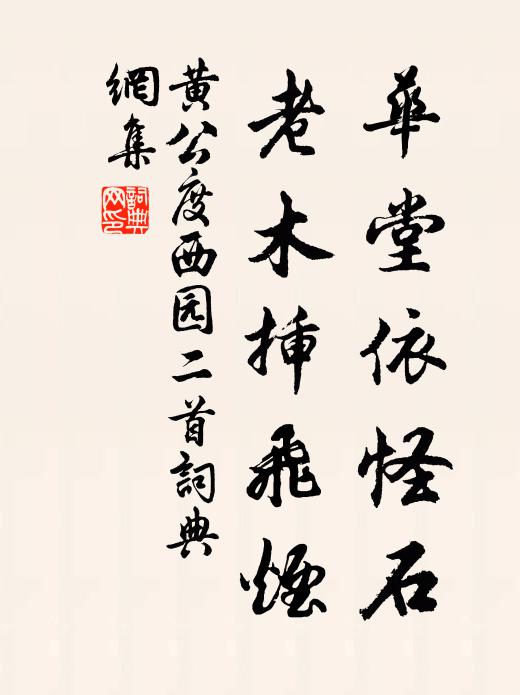 華堂依怪石
老木揷飛煙
黄公度西园二首詞典
網集
詞典網印